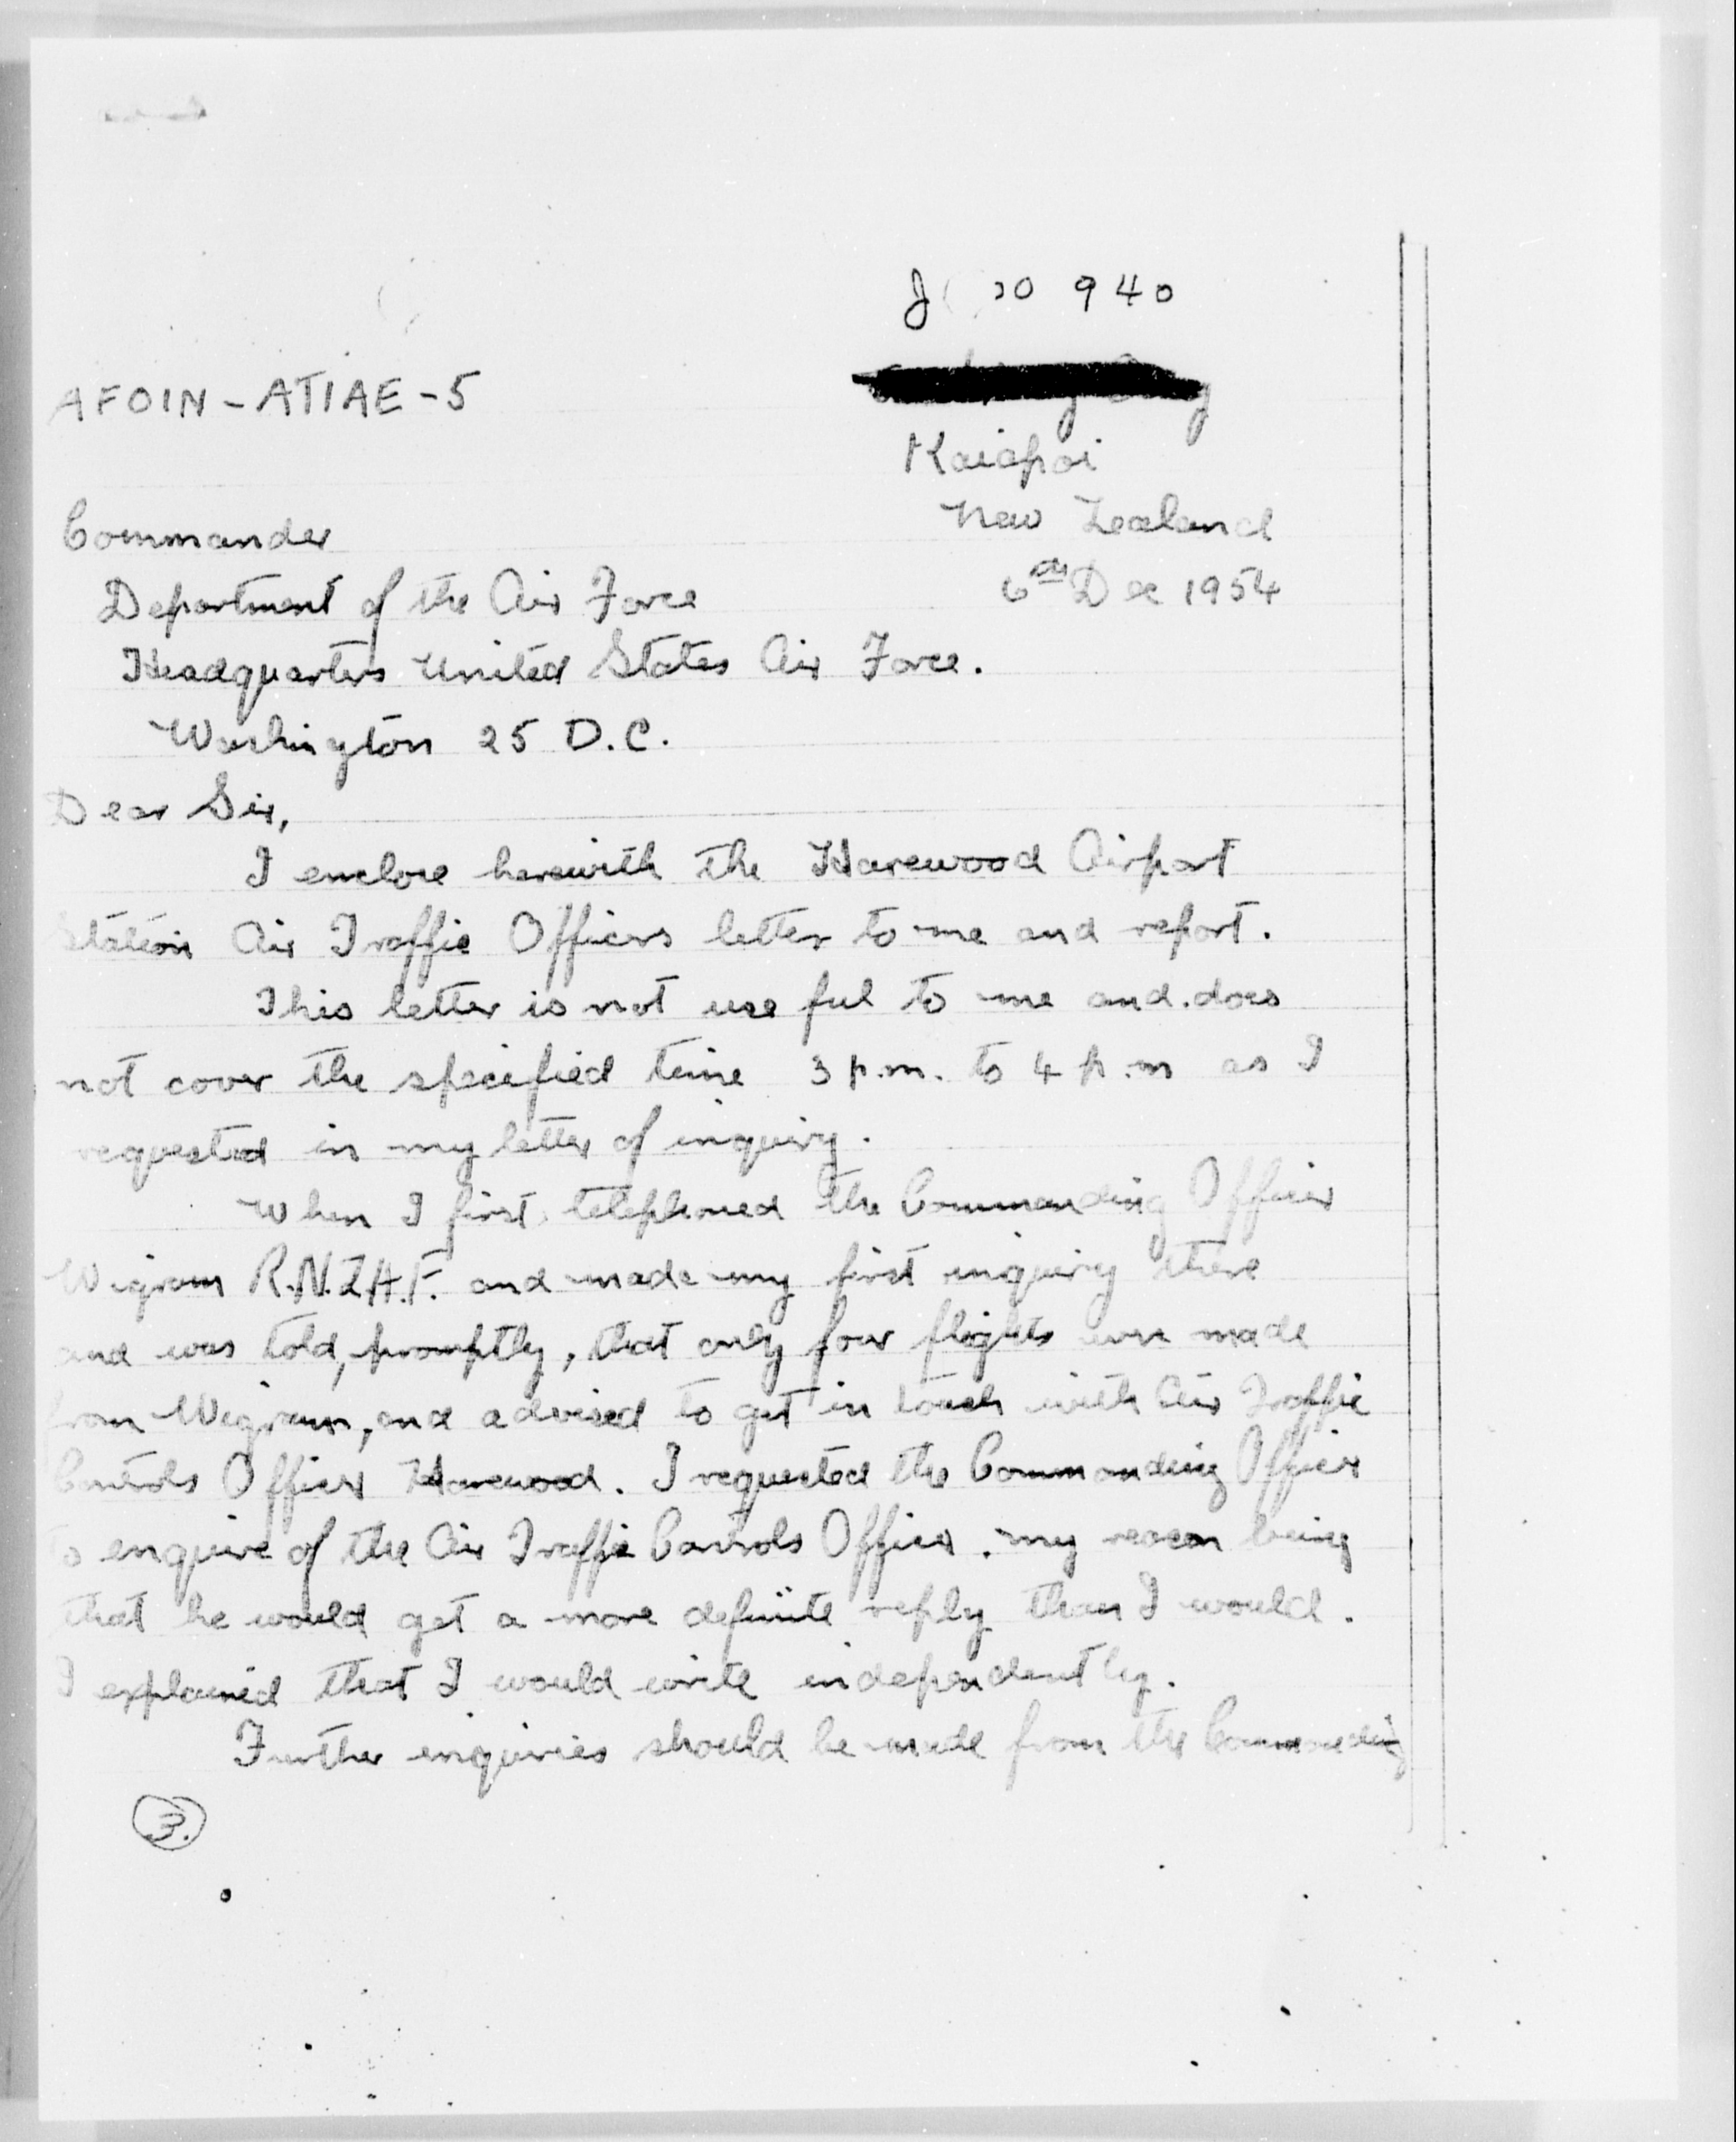 940
AFOIN-ATIAE-5
Kaiapoi
New Zealand
6th Dec 1954
Commander
Department of the Air Force
Headquarters United States Air Force.
Washington 25 D.C.
Dear Sir,
I enclose herewith the Harewood Airport
Station Air Traffic Officers letter to me and report.
This letter is not use ful to me and does
not cover the specified time 3 p.m. to 4 p.m as I
requested in my letter of inquiry.
When I first telephoned the Commanding Officer
Wigram R.N.Z.A.F. and made my first inquiry there
and was told, promptly, that only four flights were made
from Wigram, and advised to get in touch with Air Traffic
Controls Officer Harewood. I requested the Commanding Officer
to enquire of the Air Traffic Controls Officer. my reason being
that he would get a more definite reply than I would.
I explained that I would write independently.
Further inquiries should be made from the Commanding
3.